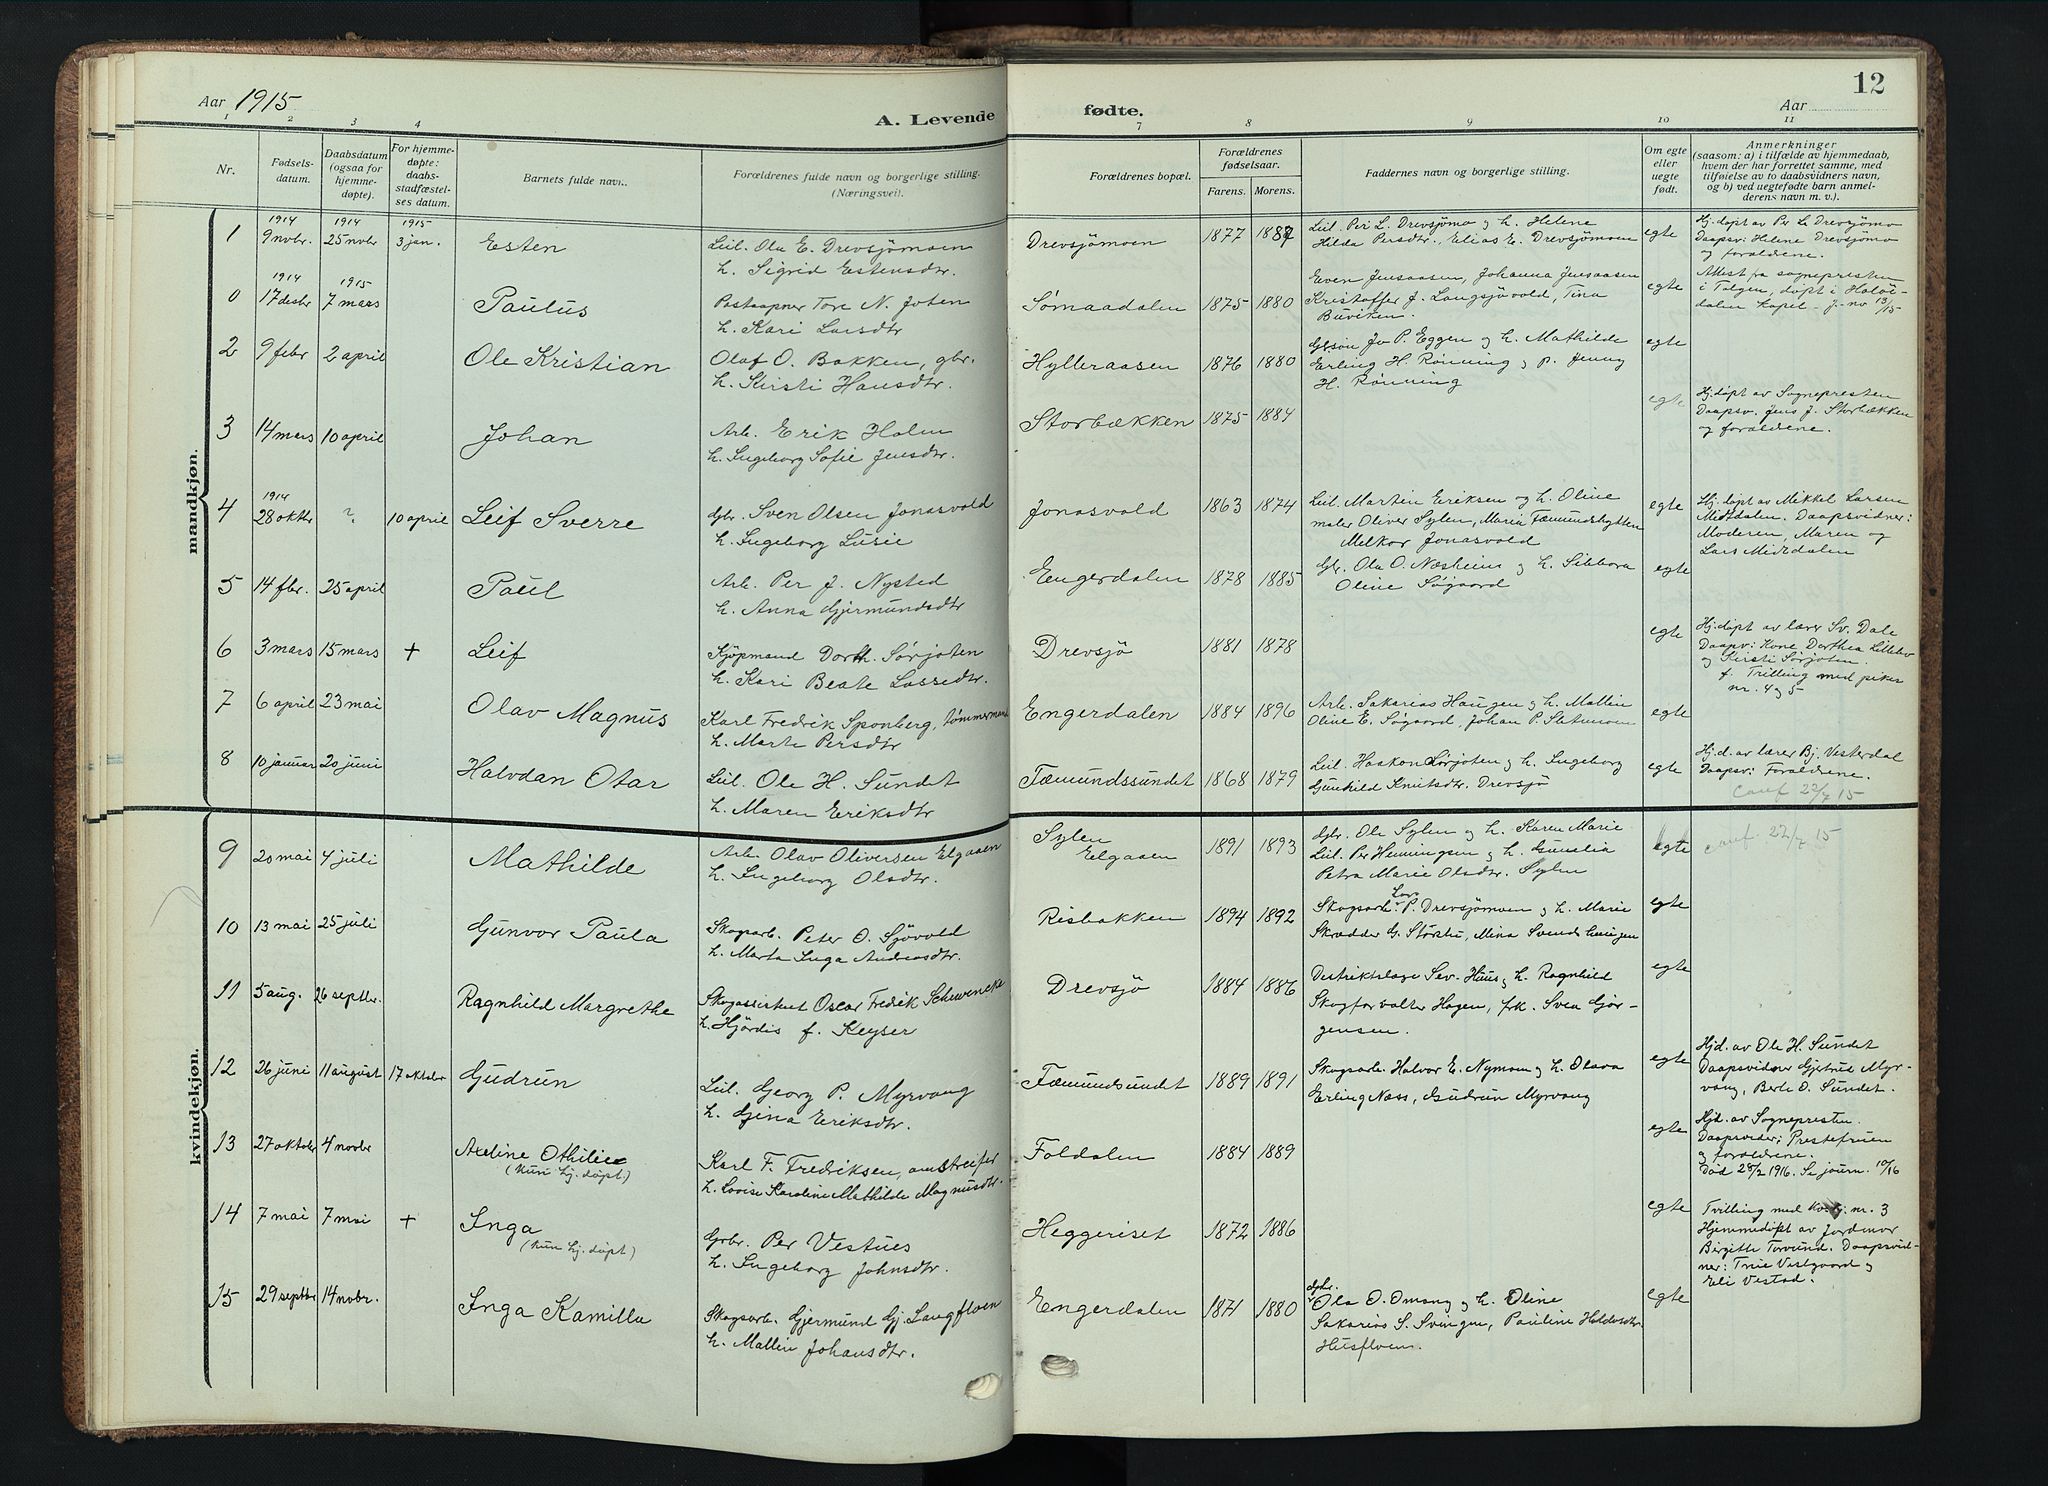 Aar 1915
A. Levende
fødte.
12
Aar
1 2 3 4
7 8 9 10 11
Nr.
Fødsels-
datum.
Daabsdatum
(ogsaa for
hjemme-
døpte).
For hjemme-
døpte:
daabs-
stadfæstel-
ses datum.
Barnets fulde navn.
Forældrenes fulde navn og borgerlige stilling.
(Næringsvei).
Forældrenes bopæl.
Forældrenes
fødselsaar.
Farens. Morens.
Faddernes navn og borgerlige stilling.
Om egte
eller
uegte
født.
Anmerkninger
(saasom: a) i tilfælde av hjemmedaab,
hvem der har forrettet samme, med
tilføielse av to daabsvidners navn,
og b) ved uegtefødte barn anmel-
derens navn m. v.).
mandkjøn.
1914 1914 1915
1 9 novbr. 25 novbr 3 jan. Esten
Leil. Ola E. Drevsjømoen
h. Sigrid Estensdtr.
Drevsjømoen 1877 1887
Leil. Per L. Drevsjømo og h. Helene
Hilda Persdtr. Elias E. Drevsjømoen
egte
Hj. døpt av Per L. Drevsjømo
Daapsv: Helene Drevsjømo
og forældrene.
1914 1915
0 17 desbr 7 mars Paulus
Postaapner Tore N. Joten
h. Kari Larsdtr
Sømaadalen 1875 1880
Even Jensaasen, Johanna Jensaasen
Kristoffer J. Langsjøvold, Tina
Buviken.
egte
Attest fra sognepresten
i Tolgen, døpt i Holøi-
dalen Kapel - J. no 13/15
2 9 febr 2 april Ole Kristian
Olaf O. Bakken, gbr.
h. Kirsti Hansdtr.
Hylleraasen 1876 1880
Gbsøn Jo P. Eggen og h. Mathilde
Erling H. Rønning og p. Jenny
H. Rønning
egte
3 14 mars 10 april Johan
Arb. Erik Holm
h. Ingeborg Sofie Jensdtr.
Storbækken 1875 1884
egte
Hj. døpt av Sognepresten
Daapsv. Jens J. Storbækken
og forældrene.
1914
4 28 oktbr ? 10 april Leif Sverre
Gbr. Sven Olsen Jonasvold
h. Ingeborg Lusie
Jonasvold 1863 1874
Leil. Marten Eriksen og h. Oline
maler Oliver Sylen, Maria Fæmundshytten
Melkor Jonasvold
egte
Hj. døpt av Mikkel Larsen
Midtdalen. Daapsvidner:
Moderen, Maren og
Lars Midtdalen
5 14 fbr. 25 april Paul
Arb. Per J. Nysted
h. Anna Gjermundsdtr
Engerdalen 1878 1885
Gbr. Ola O. Næsheim og h. Sibbora
Oline Søgaard
egte
6 3 mars 15 mars + Leif
Kjøpmand Dorth. Sørjoten
h. Kari Beate Lassedtr.
Drevsjø 1881 1878
egte
Hj. døpt av lærer Sv. Dale
Daapsv: Kone Dorthea Lillebo
og Kirsti Sørjoten.
f. Trilling med piker
nr. 4 og 5
7 6 april 23 mai Olav Magnus
Karl Fredrik Sponberg, tømmermand
h. Marte Persdtr
Engerdalen 1884 1896
Arb. Sakarias Haugen og h. Mallin
Oline E. Søgaard, Johan P. Stenmoen
egte
8 10 januar 20 juni Halvdan Otar
Leil. Ole H. Sundet
h. Maren Eriksdtr
Fæmundssundet 1868 1879
Leil. Haakon Sørjoten og h. Ingeborg
Gunhild Knutsdtr. Drevsjø
egte
Hj. d. av lærer Bj. Vesterdal
Daapsv: Forældrene.
conf 22/7 15
kvindekjøn.
9 20 mai 4 juli Mathilde
Arb. Olav Oliversen Elgaaen
h. Ingeborg Olsdtr.
Sylen
Elgaaen 1891 1893
Gbr. Ole Sylen og h. Karen Marie
Leil. Per Henningsen og h. Gunelia
Petra Marie Olsdtr. Sylen
egte
conf. 22/7 15
10 13 mai 25 juli Gunvor Paula
Skogarb. Peter O. Sjøvold
h. Marta Inga Andreasdtr.
Risbakken 1894 1892
Skogsarb. Lars P. Drevsjømoen og h. Marie
Skrædder G. Størstu, Mina Svendshaugen
egte
11 5 aug. 26 septbr. Ragnhild Margrethe
Skogassistent Oscar Fredrik Schwencke
h. Hjørdis f. Keyser
Drevsjø 1884 1886
Distriktslæge Sev. Huus og h. Ragnhild
Skogforvalter Hagen, frk. Svea Gjør-
gensen.
egte
12 26 juni 11 august 17 oktober Gudrun
Leil. Georg P. Myrvang
h. Gina Eriksdtr.
Fæmundsundet 1889 1891
Skogsarb. Halvor E. Nymoen og h. Olava
Erling Næss, Gudrun Myrvang
egte
Hjd. av Ole H. Sundet
Daapsvidner Gjetrud Myr-
vang, Berte O. Sundet.
13 27 oktober 4 novbr Axeline Othilie
(kun hj. døpt.)
Karl F. Fredriksen, omstreifer
h. Lovise Karoline Mathilde Magnusdtr.
Foldalen 1884 1889
egte
Hjd. av Sognepresten.
Daapsvidner; Prestefruen
og forældrene.
Død 28/2 1916. Se journ. 10/16
14 7 mai 7 mai + Inga
(kun hj. døpt)
Gbr. Per Vestues
h. Ingeborg Johnsdtr.
Heggeriset 1872 1886
egte
Tvilling med kv. nr. 3
Hjemmedøpt av Jordmor
Birgitte Torvund. Daapsvid-
ner: Trie Vestgaard og
Eli Vestad.
15 29 septbr 14 novbr. Inga Kamilla
Skogsarb. Gjermund Gj. Langfloen
h. Mallin Johansdtr.
Engerdalen 1871 1880
Gbr. Ola O. Omang og h. Oline
Sakarias S. Svingen, Pauline Haldosdtr
Husfloen.
egte